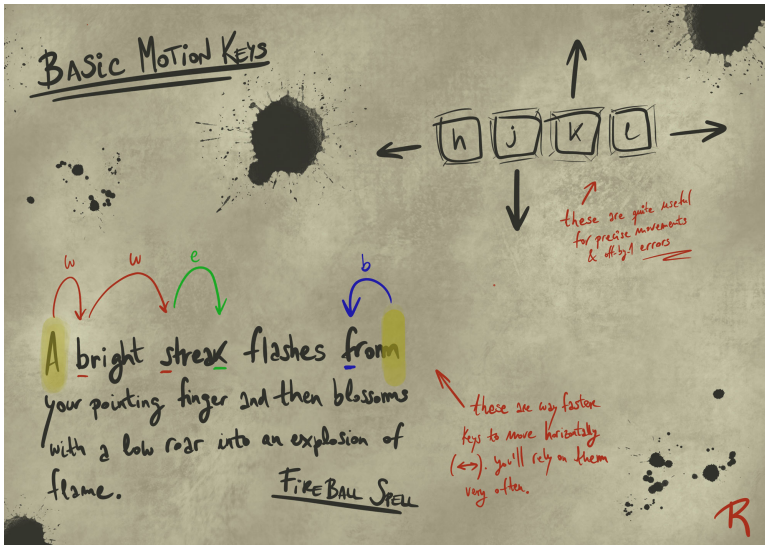 BASIC MOTION KEYS
h j K l
these are quite useful
for precise movements
& off-by-1 errors
w w e b
A bright streak flashes from
your pointing finger and then blossoms
with a low roar into an explosion of
flame.
FIREBALL SPELL
these are way faster
keys to move horizontally
(↔). you'll rely on them
very often.
R